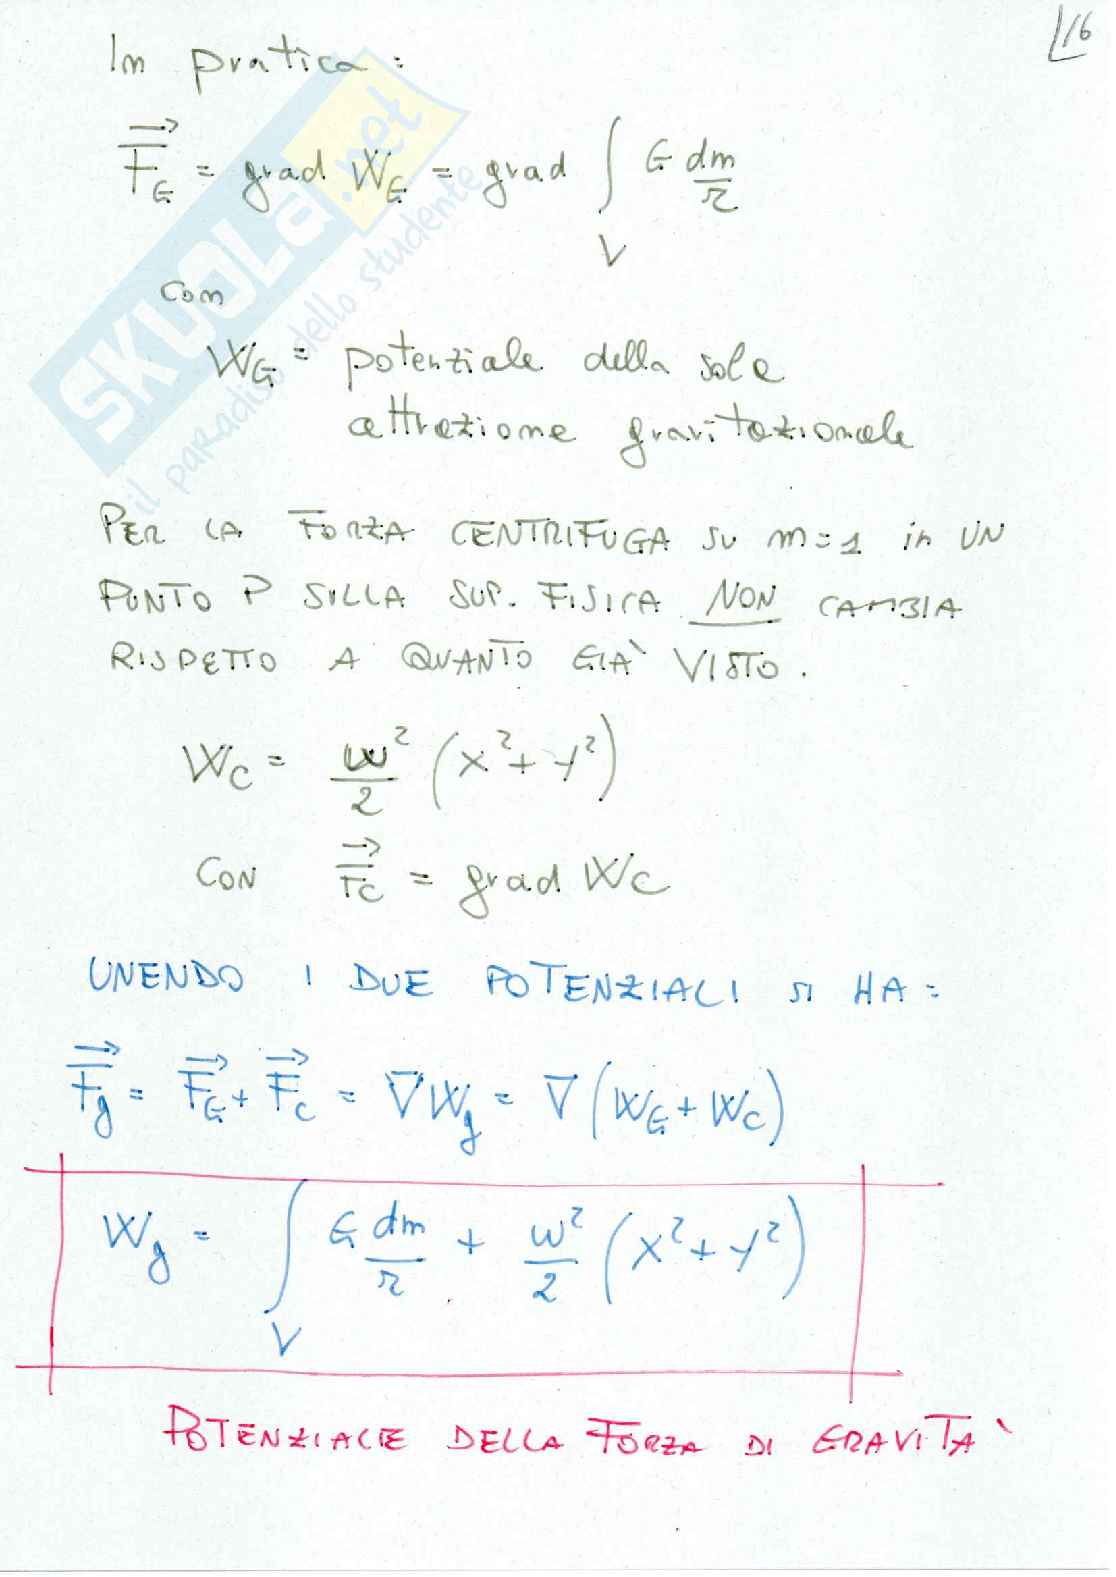 16
In pratica:
F_G = grad W_G = grad ∫_V G dm/r
con
W_G = potenziale della sola
attrazione gravitazionale
PER LA FORZA CENTRIFUGA SU m=1 in UN
PUNTO P SULLA SUP. FISICA NON CAMBIA
RISPETTO A QUANTO GIÀ VISTO.
W_C = ω²/2 (x²+y²)
CON F_C = grad W_C
UNENDO I DUE POTENZIALI SI HA:
F_g = F_G + F_C = ∇W_g = ∇(W_G + W_C)
W_g = ∫_V G dm/r + ω²/2 (x²+y²)
POTENZIALE DELLA FORZA DI GRAVITÀ
SKUOLA.net
il paRadiso dello studente